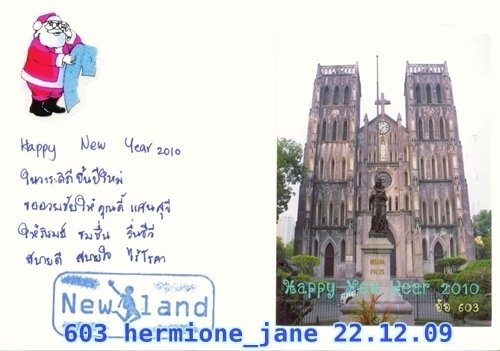 Happy New Year 2010
ในวาระดิถีขึ้นปีใหม่
ขออวยชัยให้ คุณดี๊ แสนสุขี
ให้รื่นรมย์ ชมชื่น รื่นชีวี
สบายดี สบายใจ ไร้โรคา
New land
REGINA
PACIS
Happy New Year 2010
อ้อ 603
603 hermione_jane 22.12.09